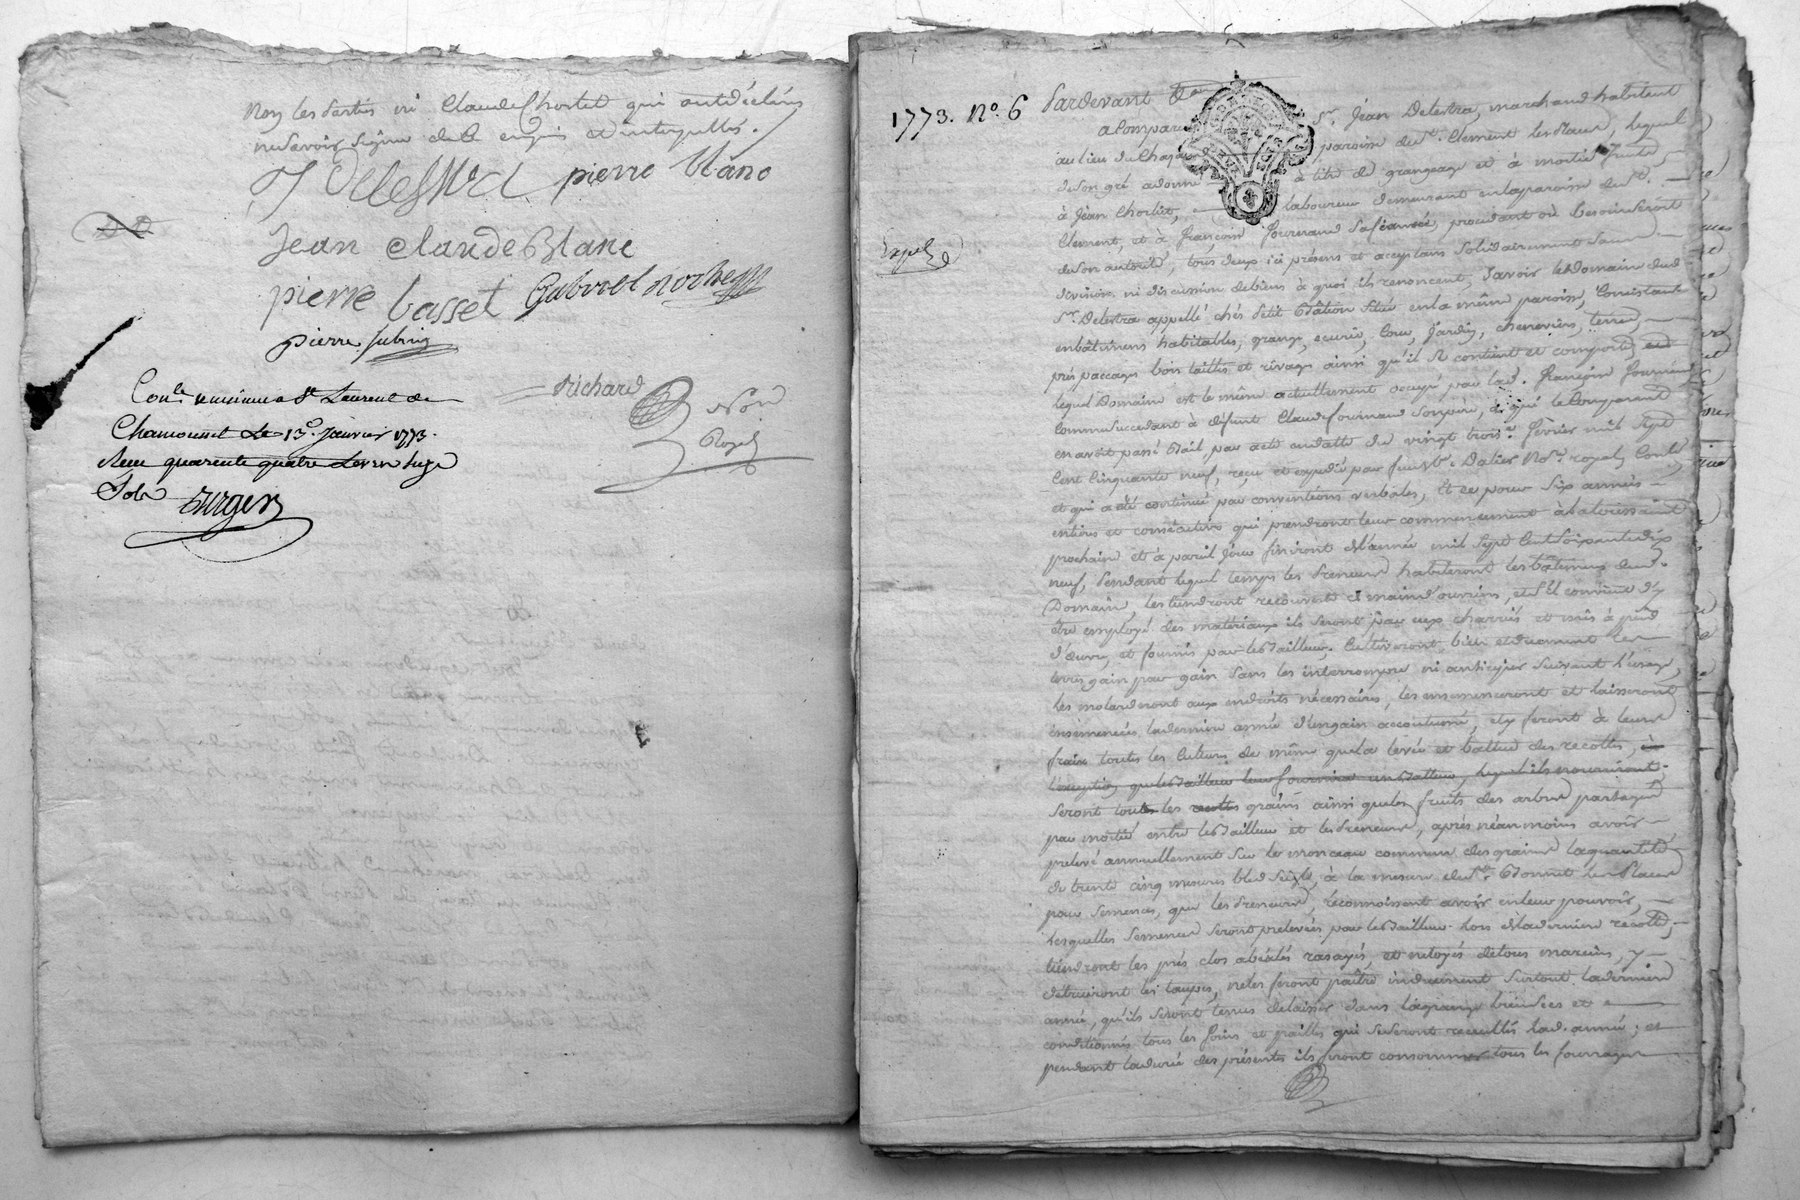 Non les parties ni Claude Chorlet qui ont déclaré
ne savoir signer de ce enquis et interpellés.
J Delestra pierre blanc
Jean claude Blanc
pierre basset Gabriel
pierre
Richard
Not
Royal
Con.lé a St Laurent de
Chamousset Le 13.e Janvier 1773.
Reçu quarente quatre sols
Burgen
1773. N.o 6
Expé
Pardevant
a Comparu Sr. Jean Delestra, marchand habitant
au lieu du paroisse de St. Clement les Places, lequel
de son gré a donné à titre de grangeage et à moitié fruits,
à Jean Chorlet, laboureur demeurant en la paroisse de St.
Clement, et à françoise fournand sa femme, procedant où besoin seroit
de son autorité, tous deux ici présens et acceptans solidairement sans
division ni discussion de biens à quoi ils renoncent, Savoir le Domaine dud.
Sr. Delestra appellé chés Petit situé en la même paroisse, Consistant
en bâtimens habitables, grange, ecurie, Cour, Jardin, cheneviere, terres,
prés paccages bois taillis et rivages ainsi qu'il se contient et comporte,
lequel Domaine est le même actuellement occupé par lad. françoise fournand
comme succedant à défunt Claude fournand son père, à qui le Comparant
en avoit passé Bail, par acte en datte du vingt trois.e février mil sept
Cent Cinquante neuf, reçu et expedié par feu Me. Dalier No.re royal,
et qui a été continué par conventions verbales, Et ce pour six années
entieres et consécutives qui prendront leur commencement à la toussaint
prochain et à pareil jour finiront de l'année mil sept Cent soixante dix
neuf, Pendant lequel temps les Preneurs habiteront les bâtimens dud.
Domaine, les tiendront recouverts de main d'ouvriers, et s'il convient d'y
être employé des materiaux ils seront par eux charriés et mis à pied
d'œuvre, et fournis par le Bailleur. Cultiveront bien et duement les
terres gain par gain sans les interrompre ni anticiper suivant l'usage,
les aux endroits nécessaires, les ensemenceront et laisseront
ensemencées la derniere année d'un gain accoutumé, et y feront à leurs
frais toutes les Cultures de même que la levée et battue des recoltes, à
l'exception que le Bailleur leur fournira un Batteur, lequel ils nourriront.
Seront toutes les recoltes grains ainsi que les fruits des arbres partagés
par moitié entre le Bailleur et les Preneurs, après néanmoins avoir
prelevé annuellement sur le monceau commun des grains la quantité
de trente cinq mesures bled seigle, à la mesure de St. Bonnet les Places
pour semences, que les Preneurs, reconnoissent avoir en leur pouvoir,
lesquelles semences seront prelevées par le Bailleur lors de la derniere recolte,
tiendront les prés clos rasayés, et netoyés de tous marains, y
détruiront les taupes, ne les feront paître induement surtout la derniere
année, qu'ils seront tenus de laisser dans la grange bien secs et
conditionnés tous les foins et pailles qui se seront recueillis lad. année; et
pendant la durée des présents ils feront consommer tous les fourrages